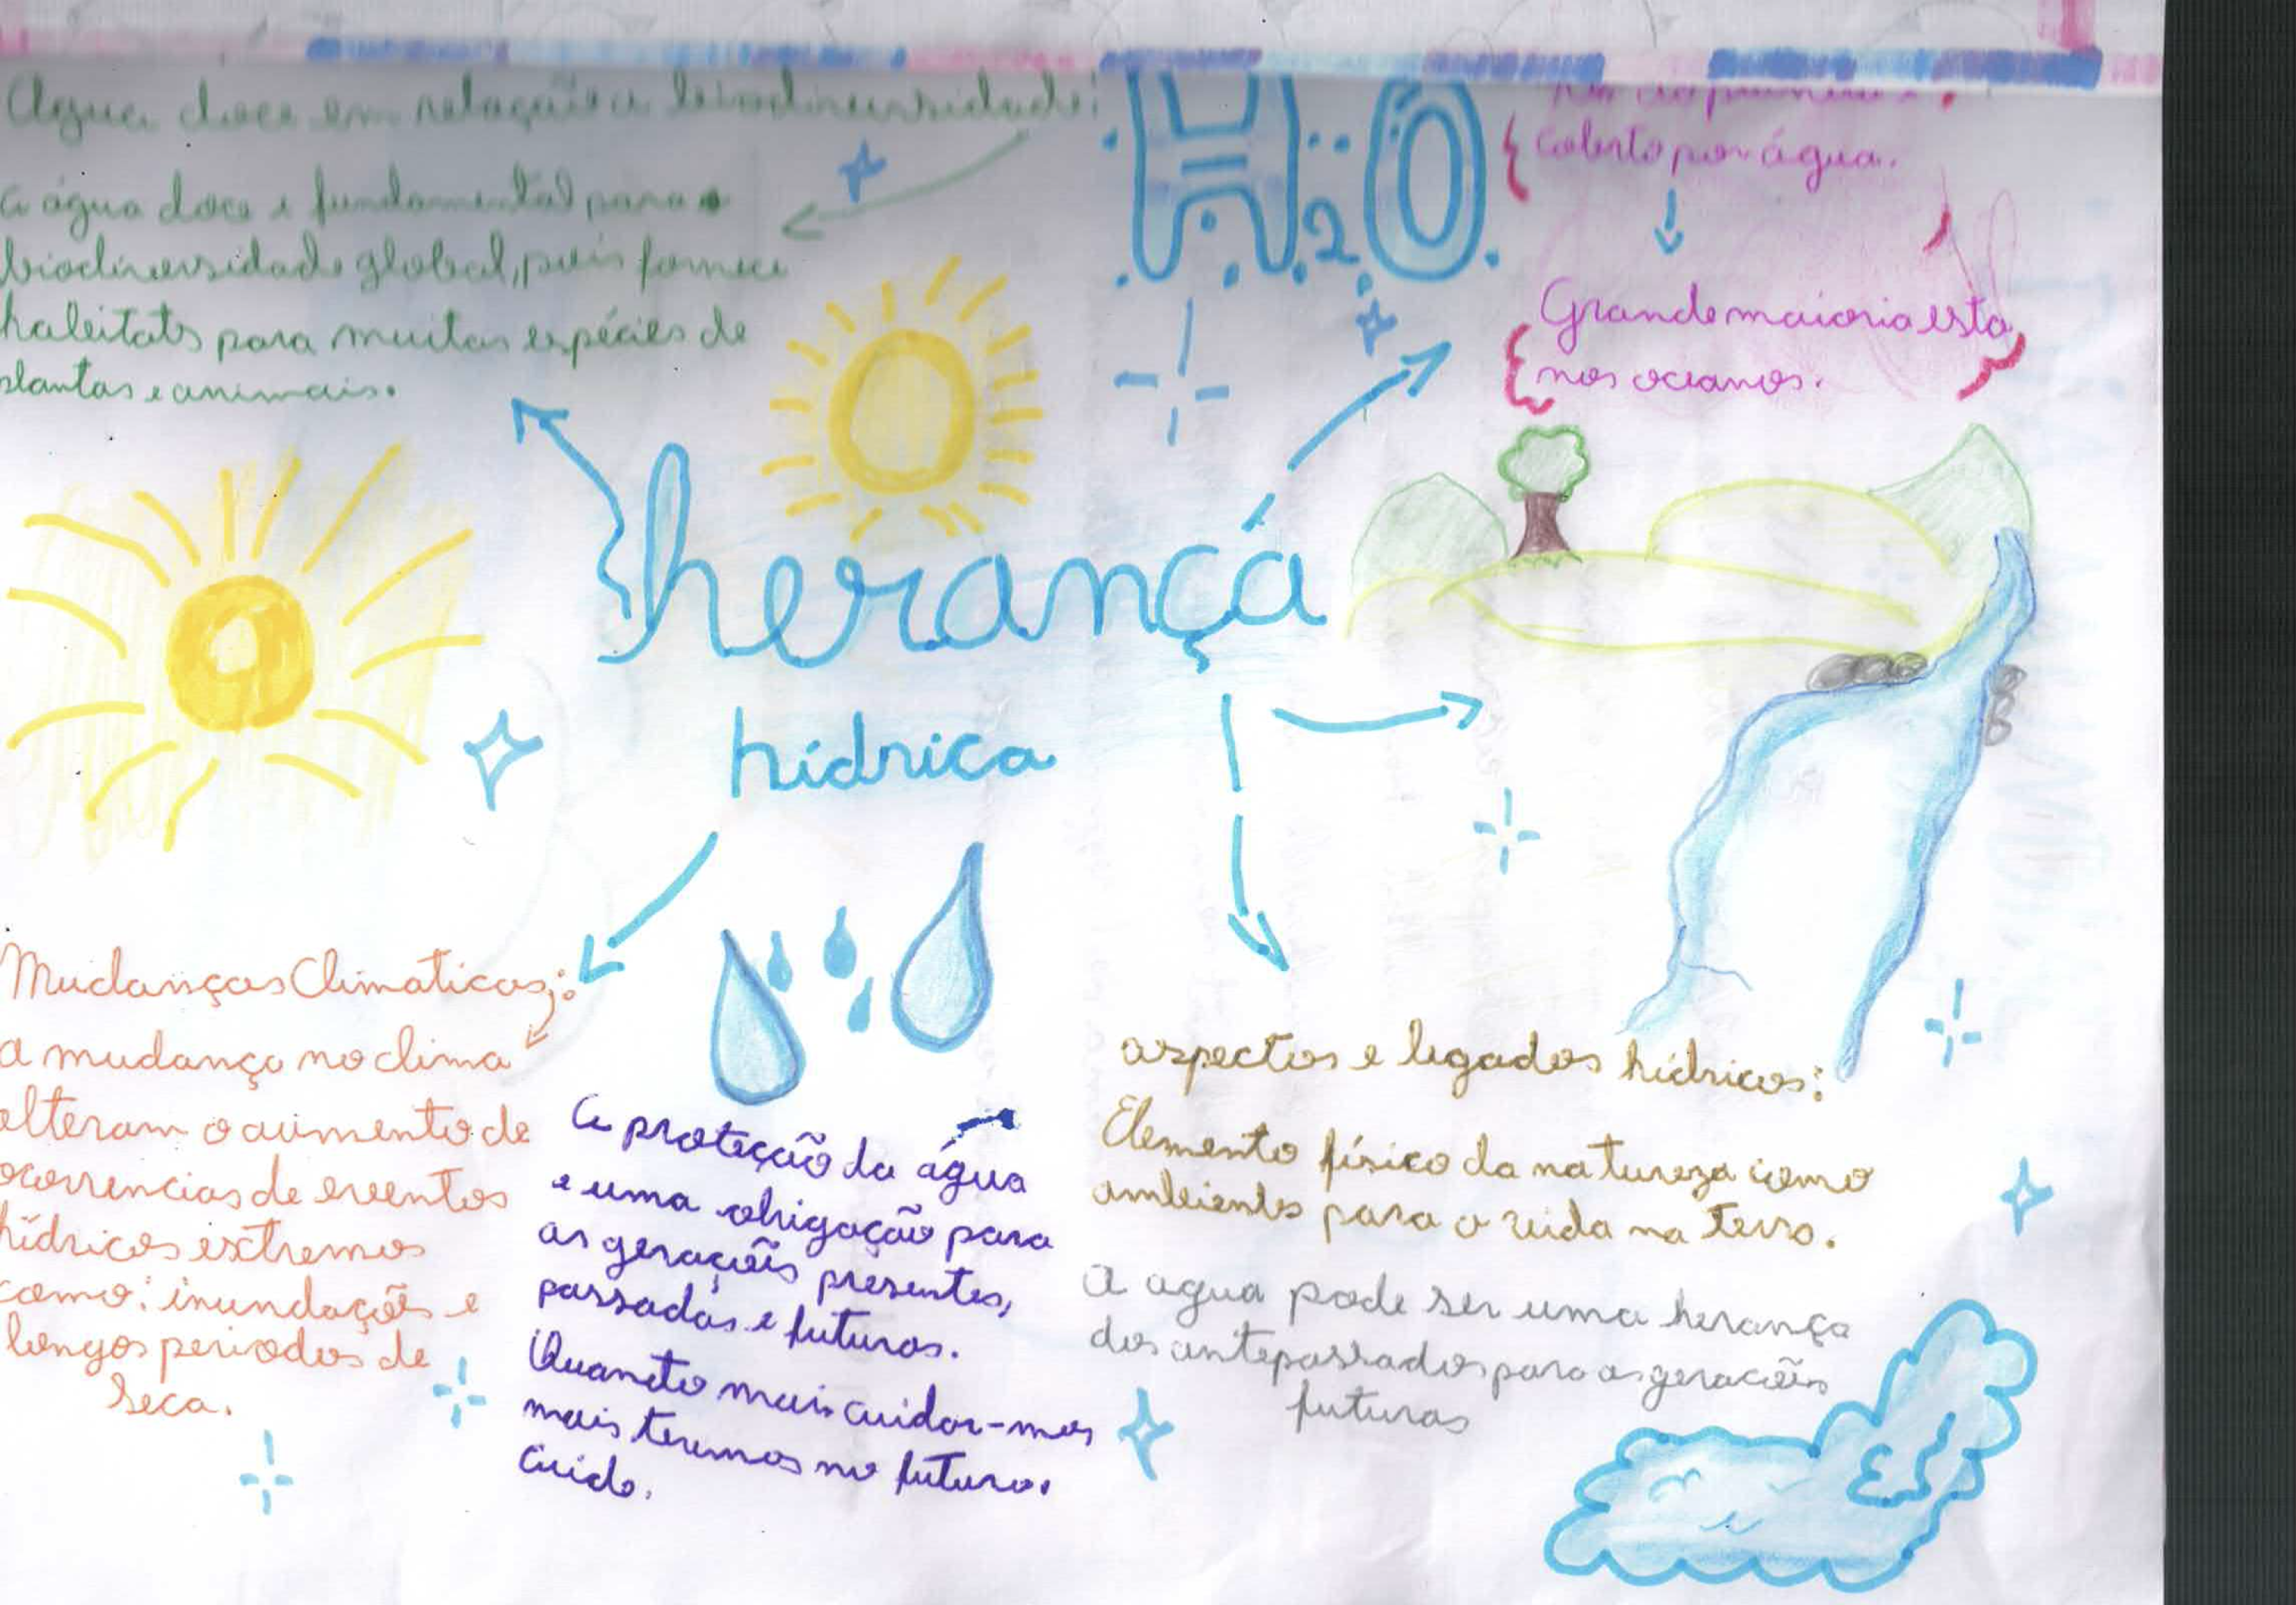 Água doce em relação a biodiversidade:
a água doce e fundamental para a
biodiversidade global, pois fornece
habitats para muitas espécies de
plantas e animais.
H2O
coberto por água.
Grande maioria esta
nos oceanos.
herançá
hídrica
Mudanças Climaticas:
a mudança no clima
alteram o aumento de
ocorrencias de eventos
hídricos extremos
como: inundações e
longos periodos de
seca.
A proteção da água
e uma obrigação para
as gerações presentes,
passadas e futuras.
Quanto mais cuidar-mos
mais teremos no futuro.
Cuide.
aspectos e legados hídricos:
Elemento físico da natureza como
ambientes para a vida na terra.
A agua pode ser uma herança
dos antepassados para as gerações
futuras